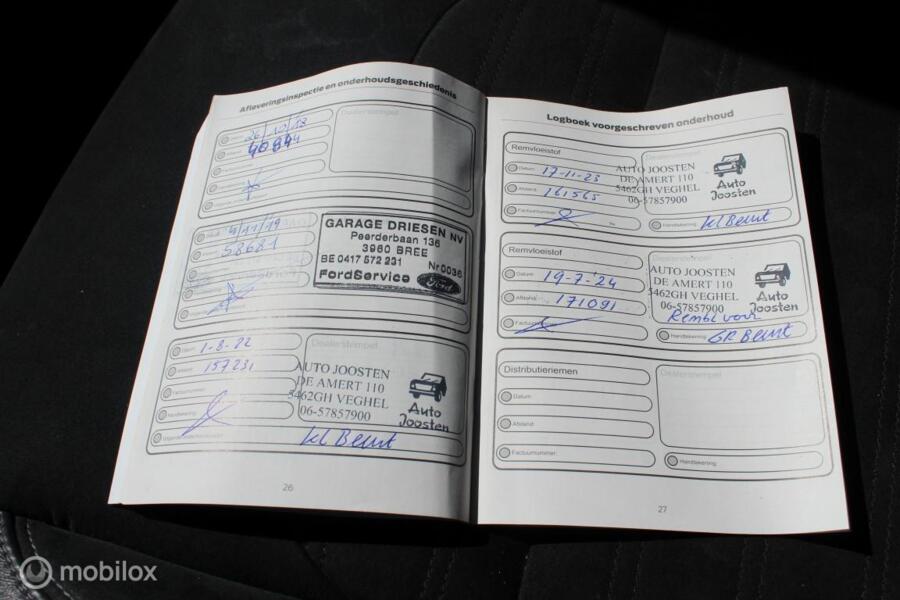 Afleveringsinspectie en onderhoudsgeschiedenis
Dealerstempel
26/10/18
40844
4/11/19
58621
GARAGE DRIESEN NV
Peerderbaan 136
3960 BREE
BE 0417 572 231 Nr 0036
FordService Ford
Datum 1-8-22
Afstand 157231
Factuurnummer
Handtekening
Dealerstempel
AUTO JOOSTEN
DE AMERT 110
5462GH VEGHEL
06-57857900
Auto
Joosten
kl Beurt
26
Logboek voorgeschreven onderhoud
Remvloeistof
Datum 17-11-23
Afstand 161565
Factuurnummer
Dealerstempel
AUTO JOOSTEN
DE AMERT 110
5462GH VEGHEL
06-57857900
Auto
Joosten
Handtekening kl Beurt
Remvloeistof
Datum 19-7-'24
Afstand 171091
Factuurnummer
Dealerstempel
AUTO JOOSTEN
DE AMERT 110
5462GH VEGHEL
06-57857900
Auto
Joosten
Rembl voor
Handtekening GR Beurt
Distributieriemen
Datum
Afstand
Factuurnummer
Dealerstempel
Handtekening
27
mobilox